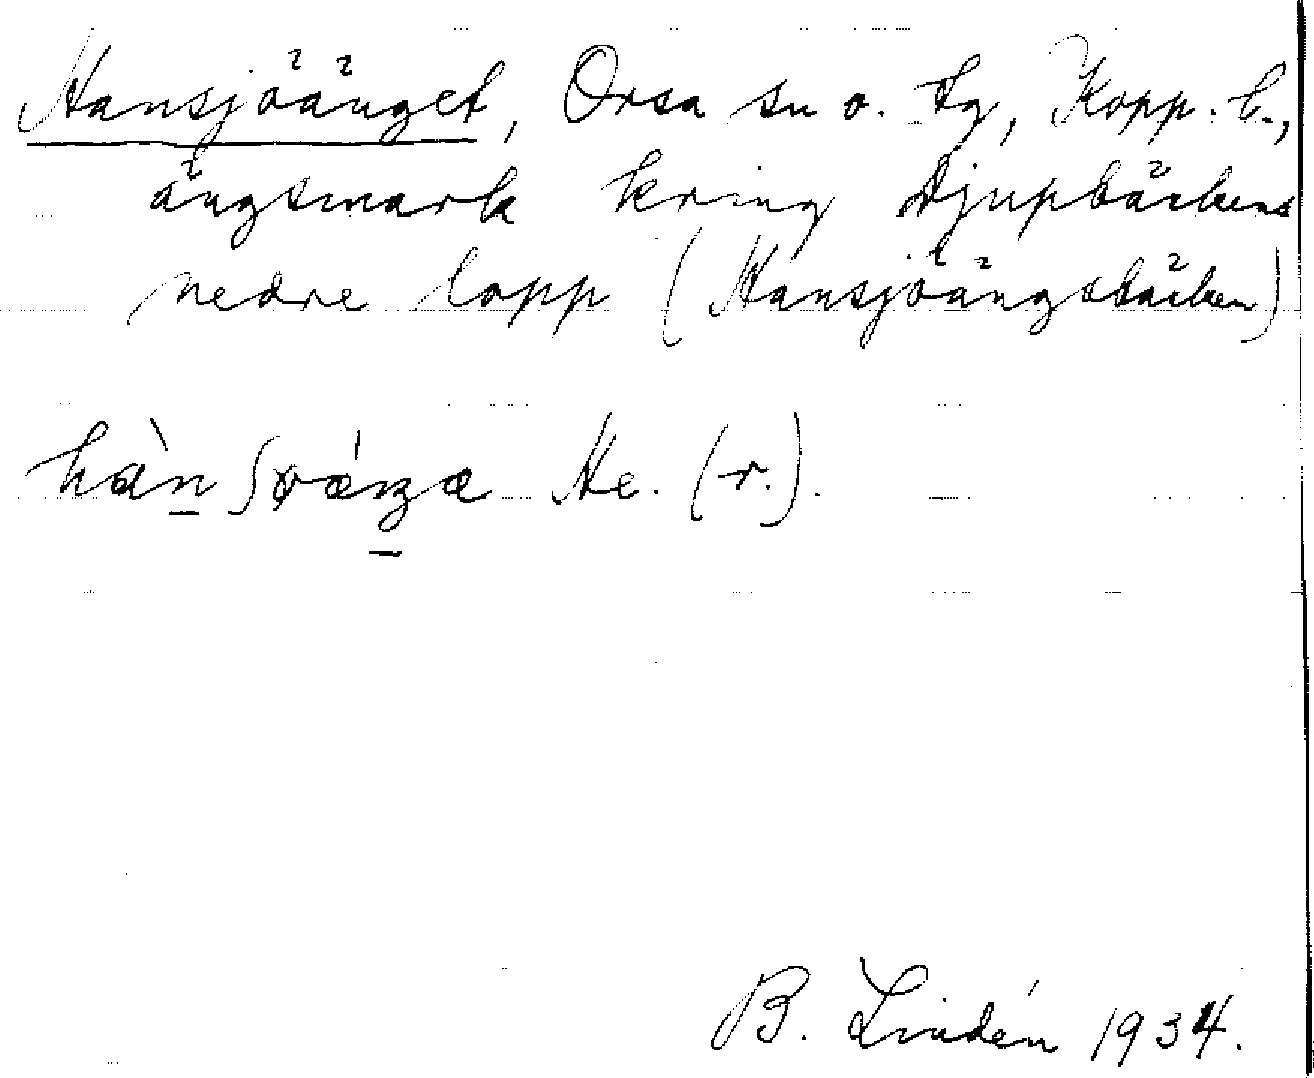 Hansjöänget, Orsa sn o. tg, Kopp. l.,
ängsmark kring Djupbäckens
nedre lopp (Hansjöängsbäcken)
He. (r.).
B. Lindén 1934.